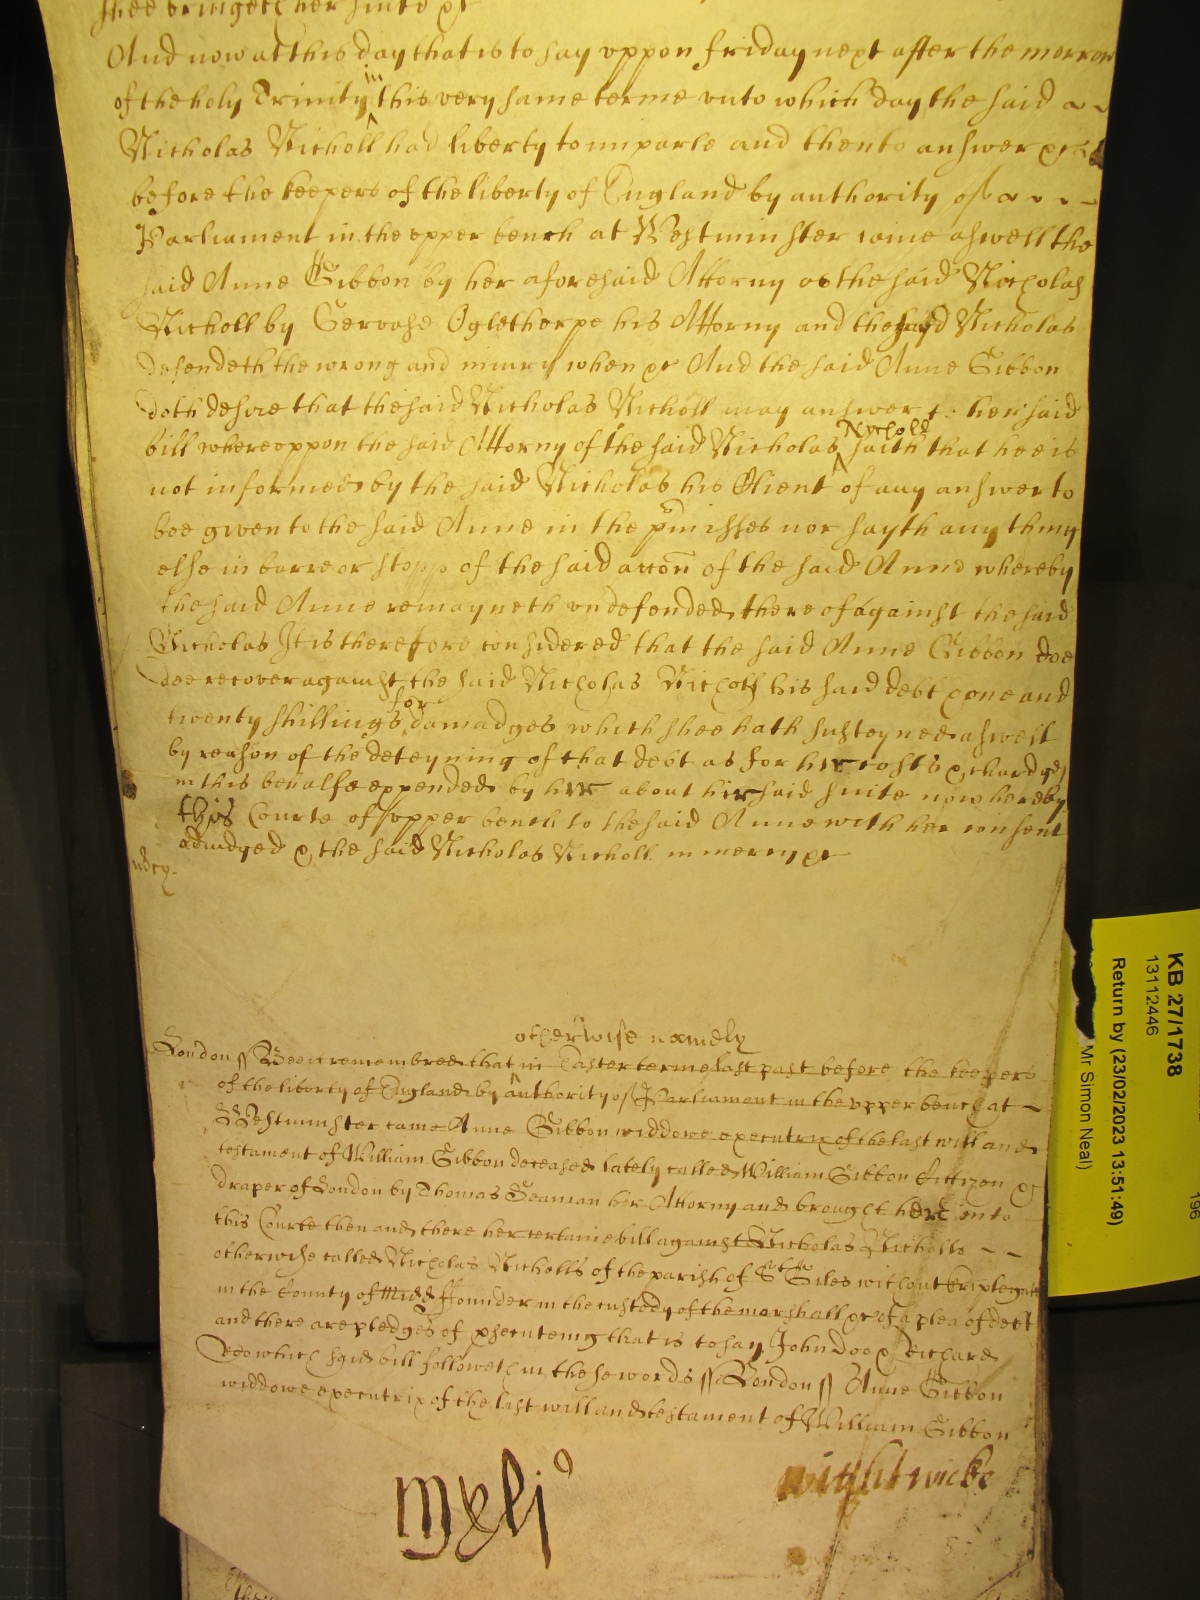 shee bringeth her suite &c
And now at this day that is to say vppon friday next after the morrow
of the holy Trinity in this very same terme vnto which day the said
Nicholas Nicholl had liberty to imparle and then to answer &c
before the keepers of the liberty of England by authority of
Parliament in the vpper bench at Westminster came aswell the
said Anne Gibbon by her aforesaid Attorny as the said Nicholas
Nicholl by Gervase Oglethorpe his Attorny and the sayd Nicholas
defendeth the wrong and iniury when &c And the said Anne Gibbon
doth desire that the said Nicholas Nicholl may answer to her said
bill wherevppon the said Attorny of the said Nicholas Nycholl saith that hee is
not informed by the said Nicholas his Client of any answer to
bee given to the said Anne in the p'misses nor sayth any thing
else in barre or stopp of the said accon of the said Anne whereby
the said Anne remayneth vndefended thereof against the said
Nicholas It is therefore considered that the said Anne Gibbon doe
doe recover against the said Nicholas Nicholl his said debt & one and
twenty shillings for damadges which shee hath susteyned aswell
by reason of the deteyning of that debt as for her costs & chardges
in this behalfe expended by her about her said suite now hereby
this Courte of vpper bench to the said Anne with her consent
adiudged & the said Nicholas Nicholl in mercy &c
mercy
otherwise namely
London ss Bee it remembred that in Easter terme last past before the keepers
of the liberty of England by authority of Parliament in the vpper bench at
Westminster came Anne Gibbon widdowe executrix of the last will and
testament of William Gibbon deceased lately called William Gibbon Cittizen &
draper of London by Thomas Seaman her Attorny and brought here into
this Courte then and there her certaine bill against Nicholas Nicholls
otherwise called Nicholas Nicholls of the parish of St Giles without Criplegate
in the County of Midd ffounder in the custody of the marshall &c of a plea of debt
and there are pledges of p'secuteing that is to say John Doo & Richard
Roo which said bill followeth in these words ss London ss Anne Gibbon
widdowe executrix of the last will and testament of William Gibbon
wightwicke
KB 27/1738
13112446
Return by (23/02/2023 13:51:49)
Mr Simon Neal)
196